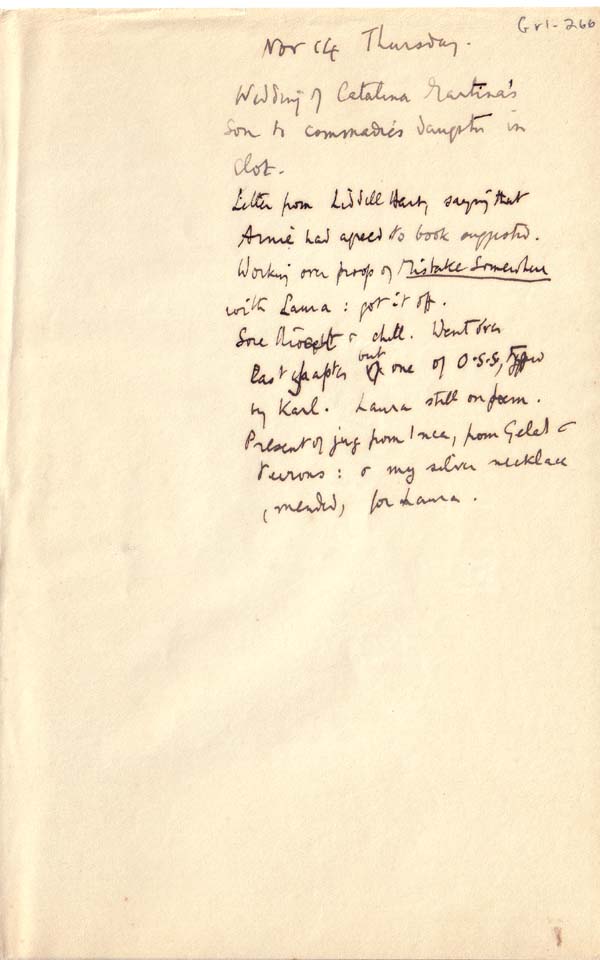 Gr1-266
Nov 14 Thursday.
Wedding of Catalina Martina's
son to commadre's daughter in
Clot.
Letter from Liddell Hart, saying that
Arnie had agreed to book suggested.
Working over proofs of Mistake Somewhere
with Laura: got it off.
Sore throat & chill. Went over
last chapter but one of O.S.S, typed
by Karl. Laura still on poem.
Present of jug from Inca, from Gelat &
: & my silver necklace
, mended, for Laura.